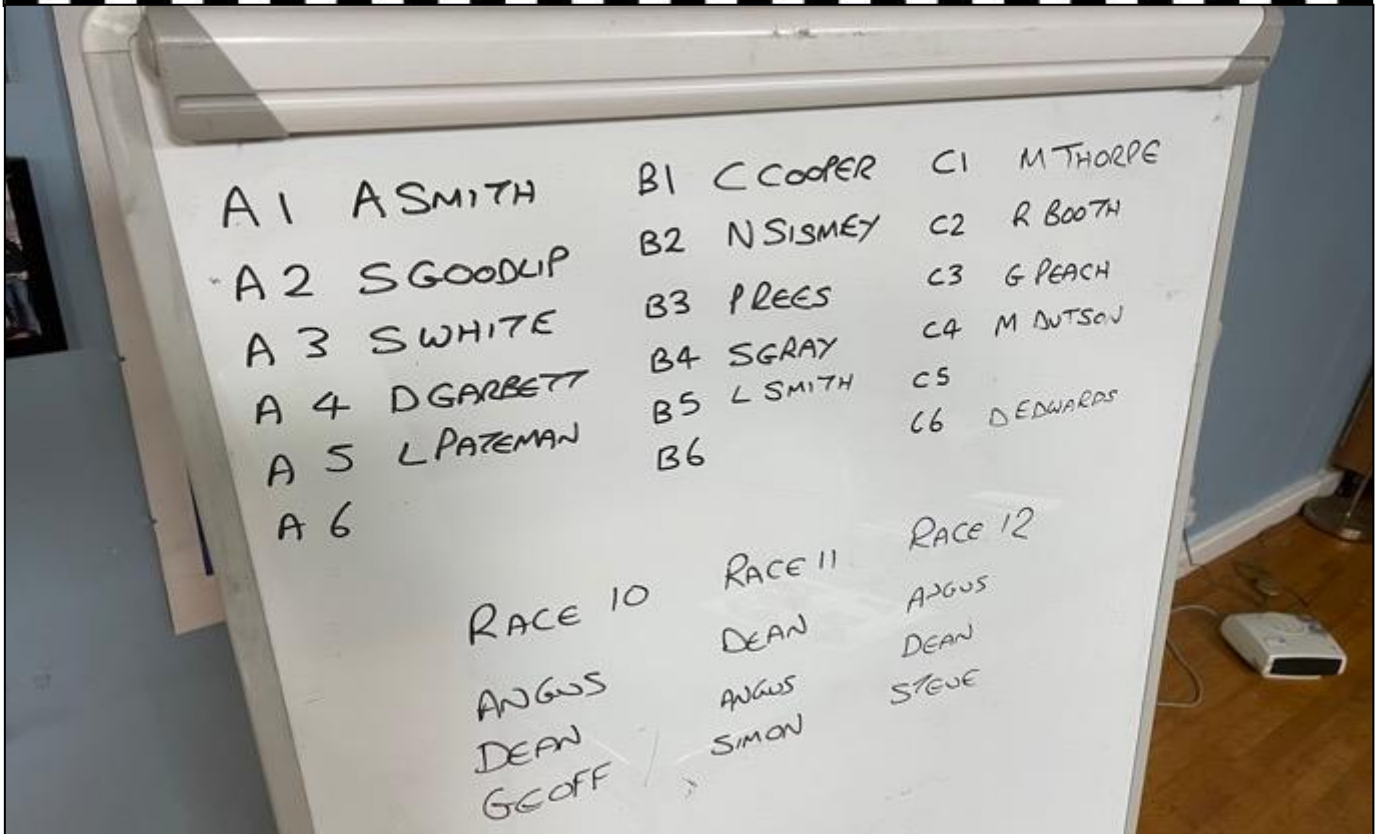 A1 A SMITH
A2 S GOODLIP
A3 S WHITE
A4 D GARBETT
A5 L PATEMAN
A6
B1 C COOPER
B2 N SISMEY
B3 P REES
B4 S GRAY
B5 L SMITH
B6
C1 M THORPE
C2 R BOOTH
C3 G PEACH
C4 M DUTSON
C5
C6 D EDWARDS
RACE 10
ANGUS
DEAN
GEOFF
RACE 11
DEAN
ANGUS
SIMON
RACE 12
ANGUS
DEAN
STEVE